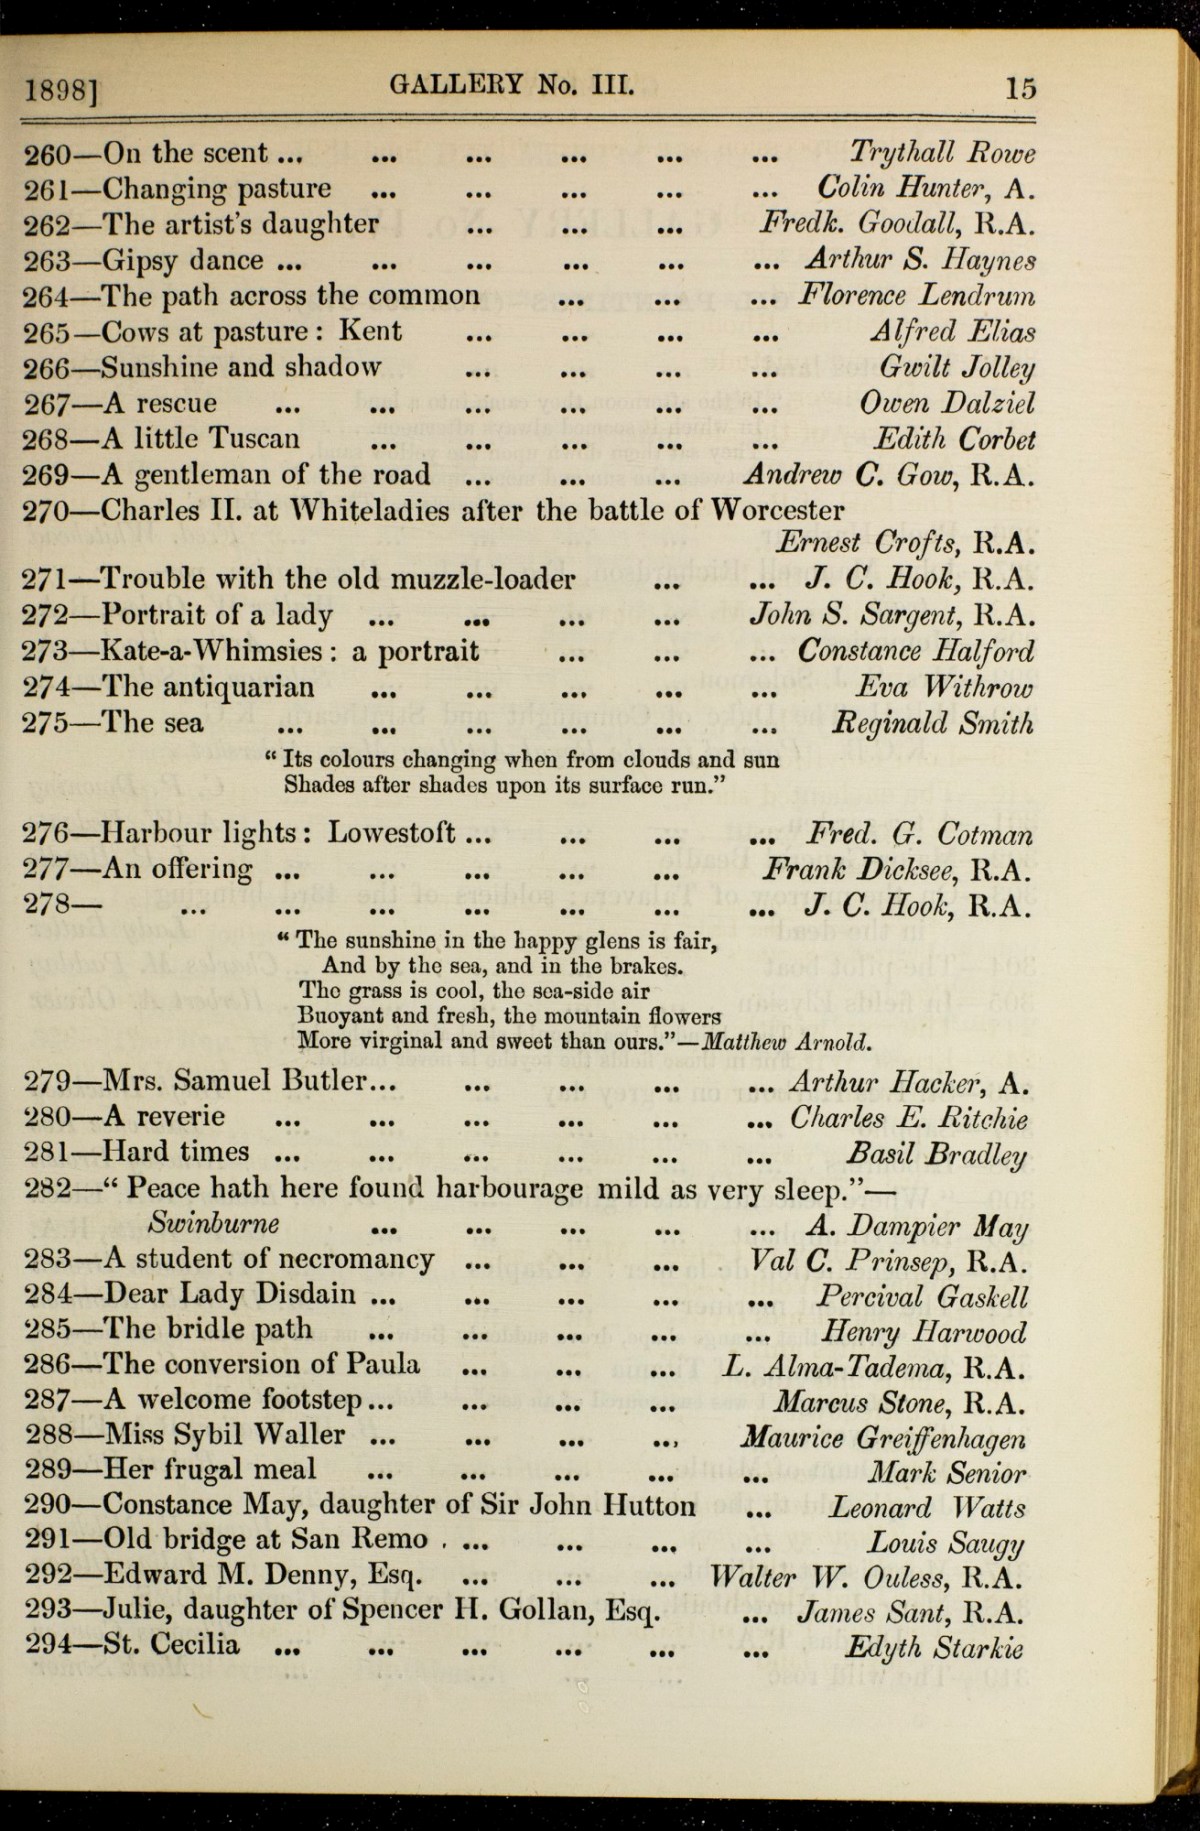 1898] GALLERY No. III. 15
260—On the scent ... ... ... ... ... ... Trythall Rowe
261—Changing pasture ... ... ... ... ... Colin Hunter, A.
262—The artist's daughter ... ... ... Fredk. Goodall, R.A.
263—Gipsy dance ... ... ... ... ... ... Arthur S. Haynes
264—The path across the common ... ... ... Florence Lendrum
265—Cows at pasture : Kent ... ... ... ... Alfred Elias
266—Sunshine and shadow ... ... ... ... Gwilt Jolley
267—A rescue ... ... ... ... ... ... Owen Dalziel
268—A little Tuscan ... ... ... ... ... Edith Corbet
269—A gentleman of the road ... ... ... Andrew C. Gow, R.A.
270—Charles II. at Whiteladies after the battle of Worcester
Ernest Crofts, R.A.
271—Trouble with the old muzzle-loader ... ... J. C. Hook, R.A.
272—Portrait of a lady ... ... ... ... John S. Sargent, R.A.
273—Kate-a-Whimsies : a portrait ... ... ... Constance Halford
274—The antiquarian ... ... ... ... ... Eva Withrow
275—The sea ... ... ... ... ... ... Reginald Smith
“ Its colours changing when from clouds and sun
Shades after shades upon its surface run.”
276—Harbour lights : Lowestoft ... ... ... ... Fred. G. Cotman
277—An offering ... ... ... ... ... Frank Dicksee, R.A.
278— ... ... ... ... ... ... ... J. C. Hook, R.A.
“ The sunshine in the happy glens is fair,
And by the sea, and in the brakes.
The grass is cool, the sea-side air
Buoyant and fresh, the mountain flowers
More virginal and sweet than ours.”—Matthew Arnold.
279—Mrs. Samuel Butler... ... ... ... ... Arthur Hacker, A.
280—A reverie ... ... ... ... ... ... Charles E. Ritchie
281—Hard times ... ... ... ... ... ... Basil Bradley
282—“ Peace hath here found harbourage mild as very sleep.”—
Swinburne ... ... ... ... ... A. Dampier May
283—A student of necromancy ... ... ... Val C. Prinsep, R.A.
284—Dear Lady Disdain ... ... ... ... ... Percival Gaskell
285—The bridle path ... ... ... ... ... Henry Harwood
286—The conversion of Paula ... ... ... L. Alma-Tadema, R.A.
287—A welcome footstep ... ... ... ... Marcus Stone, R.A.
288—Miss Sybil Waller ... ... ... ... Maurice Greiffenhagen
289—Her frugal meal ... ... ... ... ... Mark Senior
290—Constance May, daughter of Sir John Hutton ... Leonard Watts
291—Old bridge at San Remo . ... ... ... ... Louis Saugy
292—Edward M. Denny, Esq. ... ... ... Walter W. Ouless, R.A.
293—Julie, daughter of Spencer H. Gollan, Esq. ... James Sant, R.A.
294—St. Cecilia ... ... ... ... ... ... Edyth Starkie